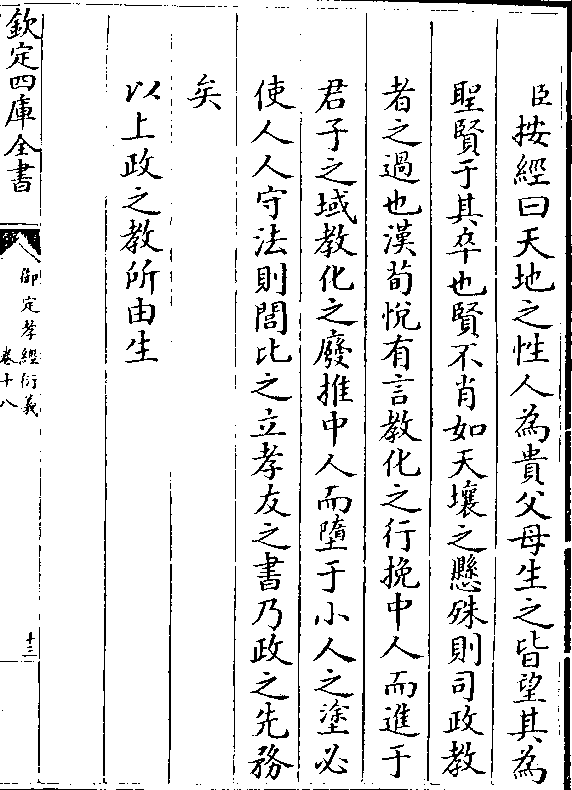 臣按經曰天地之性人為貴父母生之皆望其為
聖賢于其卒也賢不肖如天壤之懸殊則司政教
者之過也漢荀悅有言教化之行挽中人而進于
君子之域教化之廢推中人而墮于小人之塗必
使人人守法則閭比之立孝友之書乃政之先務
矣
以上政之教所由生
欽定四庫全書
御定孝經衍義
卷十八
十三